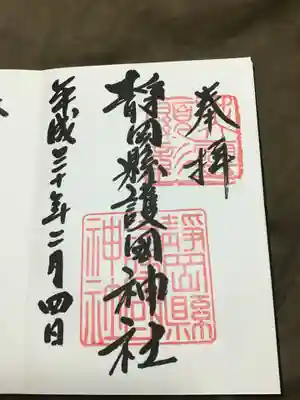 奉拝
静岡縣護國神社
平成三十年二月四日
静岡縣
護國
神社